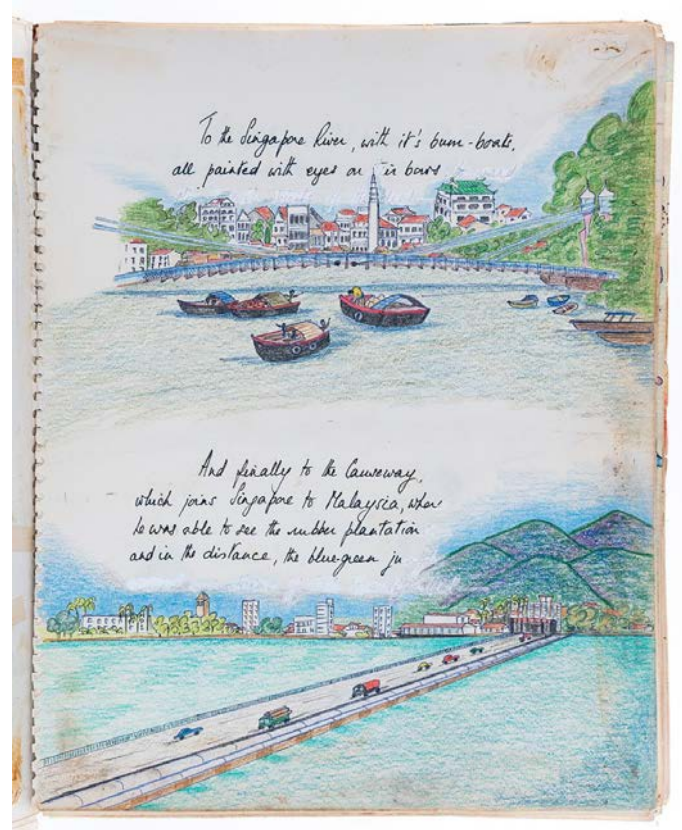 To the Singapore River, with it's bum-boats,
all painted with eyes on ir bows
And finally to the Causeway,
which joins Singapore to Malaysia, wher
he was able to see the rubber plantation
and in the distance, the blue-green ju